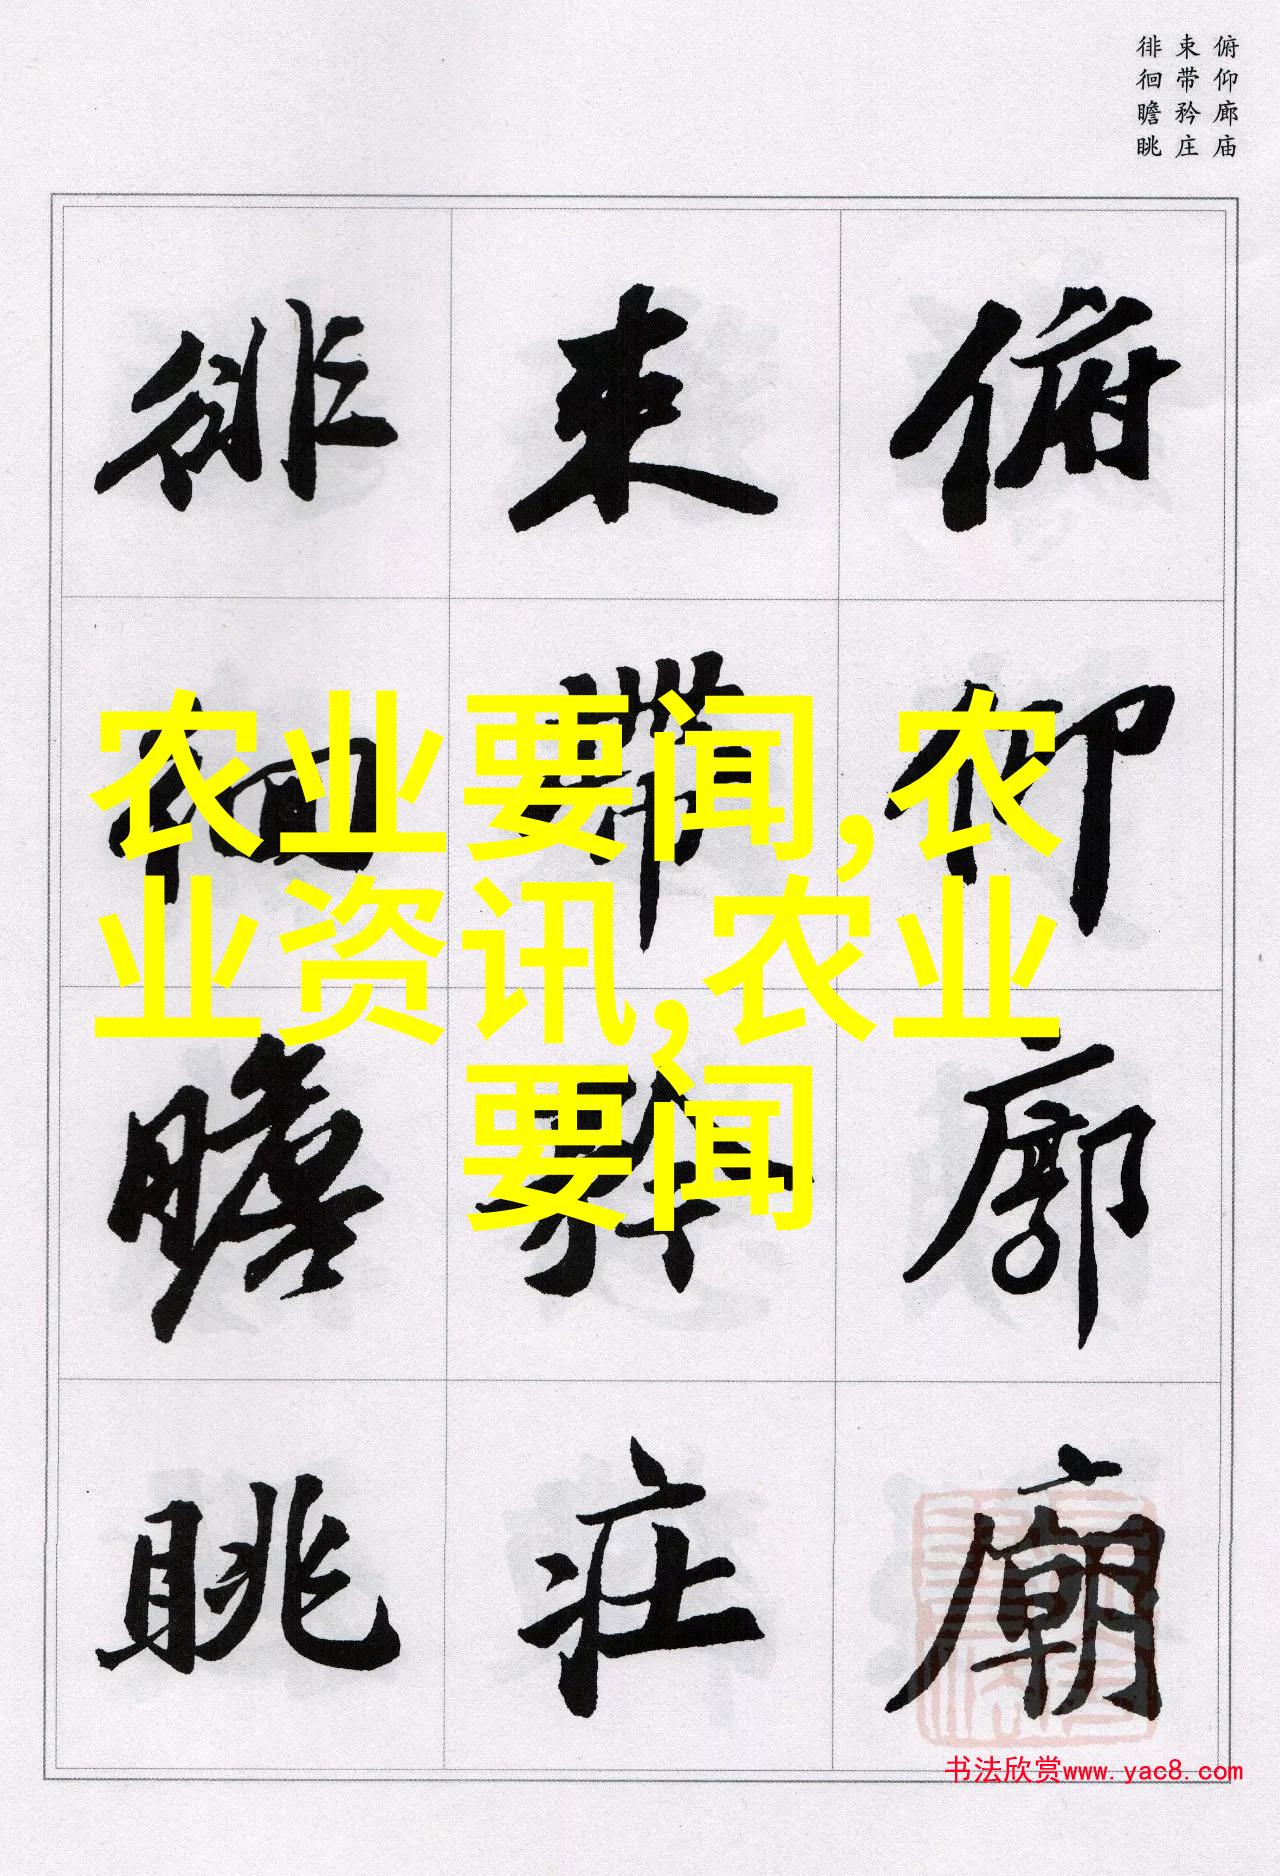 俯仰廊庙
束带矜庄
徘徊瞻眺
俯仰廊廟
束帶矜莊
徘徊瞻眺
农业要闻,农
业资讯,农业
要闻
书法欣赏www.yac8.com